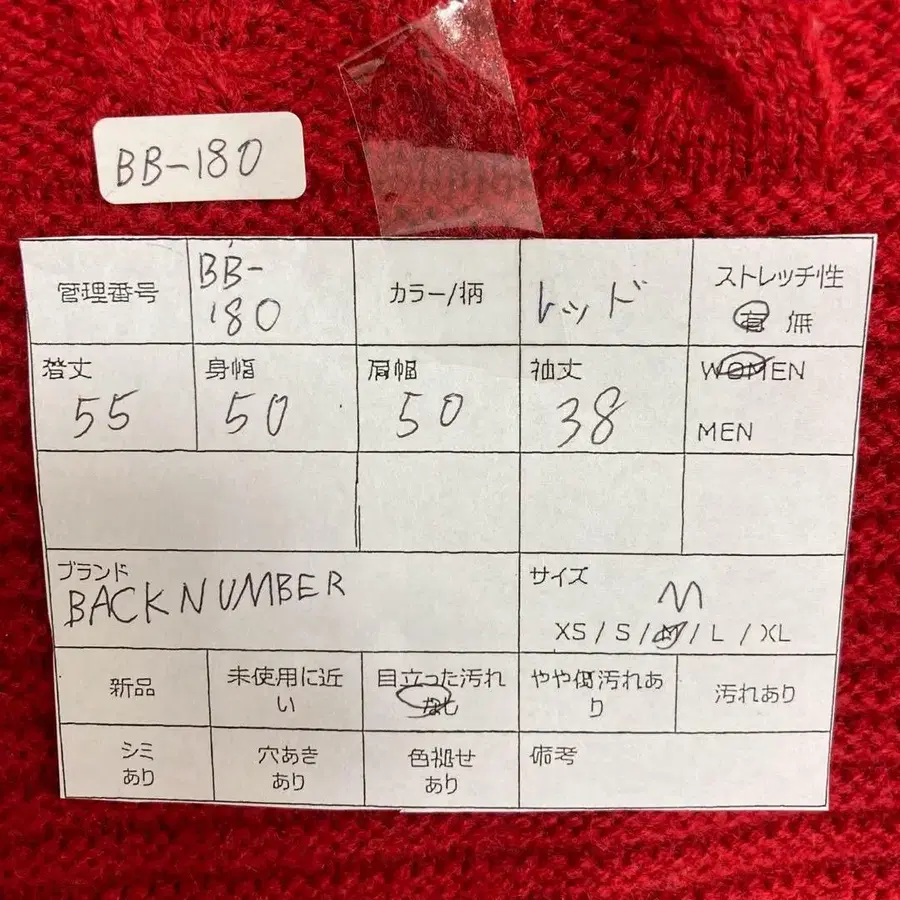 BB-180
管理番号
BB-
180
カラー/柄
レッド
ストレッチ性
有 無
着丈
55
身幅
50
肩幅
50
袖丈
38
WOMEN
MEN
ブランド
BACK NUMBER
サイズ
M
XS / S / M / L / XL
新品
未使用に近
い
目立った汚れ
なし
やや傷汚れあ
り
汚れあり
シミ
あり
穴あき
あり
色褪せ
あり
備考